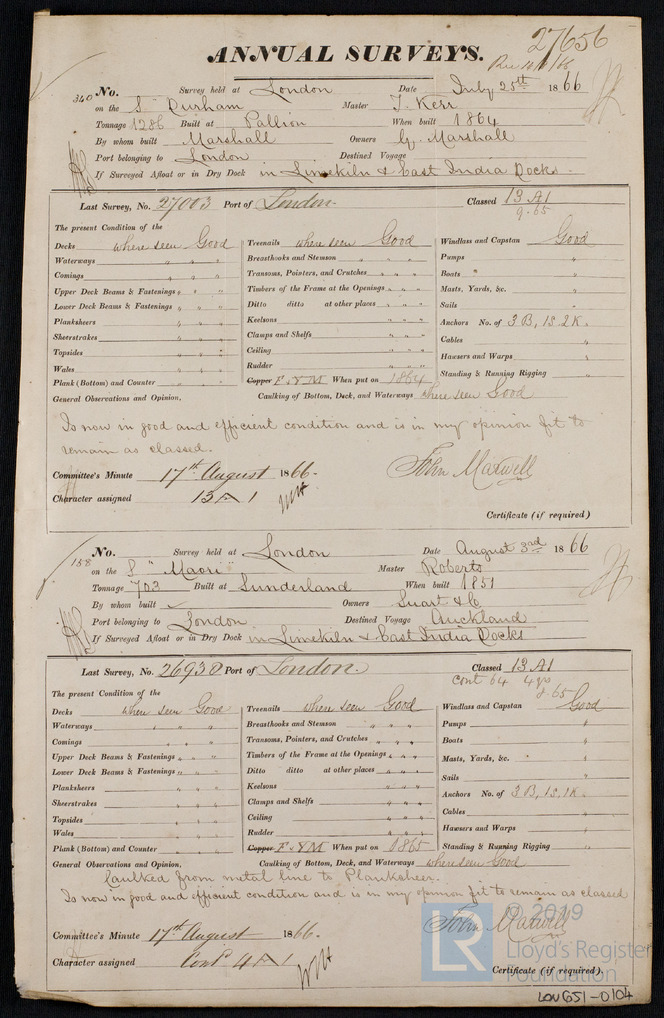 27656
ANNUAL SURVEYS.
340 No. Survey held at London Date July 25th 1866
on the S Durham Master T. Kerr
Tonnage 1286 Built at Pallion When built 1864
By whom built Marshall Owners G. Marshall
Port belonging to London Destined Voyage
If Surveyed Afloat or in Dry Dock in Limekiln & East India Docks.
Last Survey, No. 27003 Port of London. Classed 13 A1
9.65
The present Condition of the
Decks where seen Good Treenails where seen Good Windlass and Capstan Good
Waterways " " Breasthooks and Stemson " " " Pumps "
Comings " " Transoms, Pointers, and Crutches " " " Boats " "
Upper Deck Beams & Fastenings " " " Timbers of the Frame at the Openings " " " Masts, Yards, &c. "
Lower Deck Beams & Fastenings " " " Ditto ditto at other places " " " Sails "
Planksheers " " " Keelsons " " " Anchors No. of 3 B, 1S. 2K.
Sheerstrakes " " " Clamps and Shelfs " " " Cables "
Topsides " " " Ceiling " " " Hawsers and Warps "
Wales " " " Rudder " " " Standing & Running Rigging "
Plank (Bottom) and Counter " " " Copper F. & YM When put on 1864
General Observations and Opinion, Caulking of Bottom, Deck, and Waterways where seen Good
Is now in good and efficient condition and is in my opinion fit to
remain as classed.
Committee's Minute 17th August 1866. John Maxwell
Character assigned 13 A 1
Certificate (if required)
158 No. Survey held at London Date August 3rd 1866
on the S "Maori" Master Roberts
Tonnage 703 Built at Sunderland When built 1851
By whom built Owners Suart & Co
Port belonging to London Destined Voyage Auckland
If Surveyed Afloat or in Dry Dock in Limekiln & East India Docks
Last Survey, No. 26930 Port of London. Classed 13 A1
Cont 64 4 yrs
8.65
The present Condition of the
Decks where seen Good Treenails where seen Good Windlass and Capstan Good
Waterways " " " Breasthooks and Stemson " " " Pumps "
Comings " " " Transoms, Pointers, and Crutches " " " Boats "
Upper Deck Beams & Fastenings " " " Timbers of the Frame at the Openings " " " Masts, Yards, &c. "
Lower Deck Beams & Fastenings " " " Ditto ditto at other places " " " Sails "
Planksheers " " " Keelsons " " " Anchors No. of 3 B, 1S. 1K.
Sheerstrakes " " " Clamps and Shelfs " " " Cables "
Topsides " " " Ceiling " " " Hawsers and Warps "
Wales " " " Rudder " " " Standing & Running Rigging "
Plank (Bottom) and Counter " " " Copper F. & YM When put on 1865
General Observations and Opinion, Caulking of Bottom, Deck, and Waterways where seen Good
Caulked from metal line to Planksheer.
Is now in good and efficient condition and is in my opinion fit to remain as classed
John Maxwell
Committee's Minute 17th August 1866.
Character assigned Contd 4 A 1
Certificate (if required).
© 2019
LR Lloyd's Register
Foundation
LON651-0104